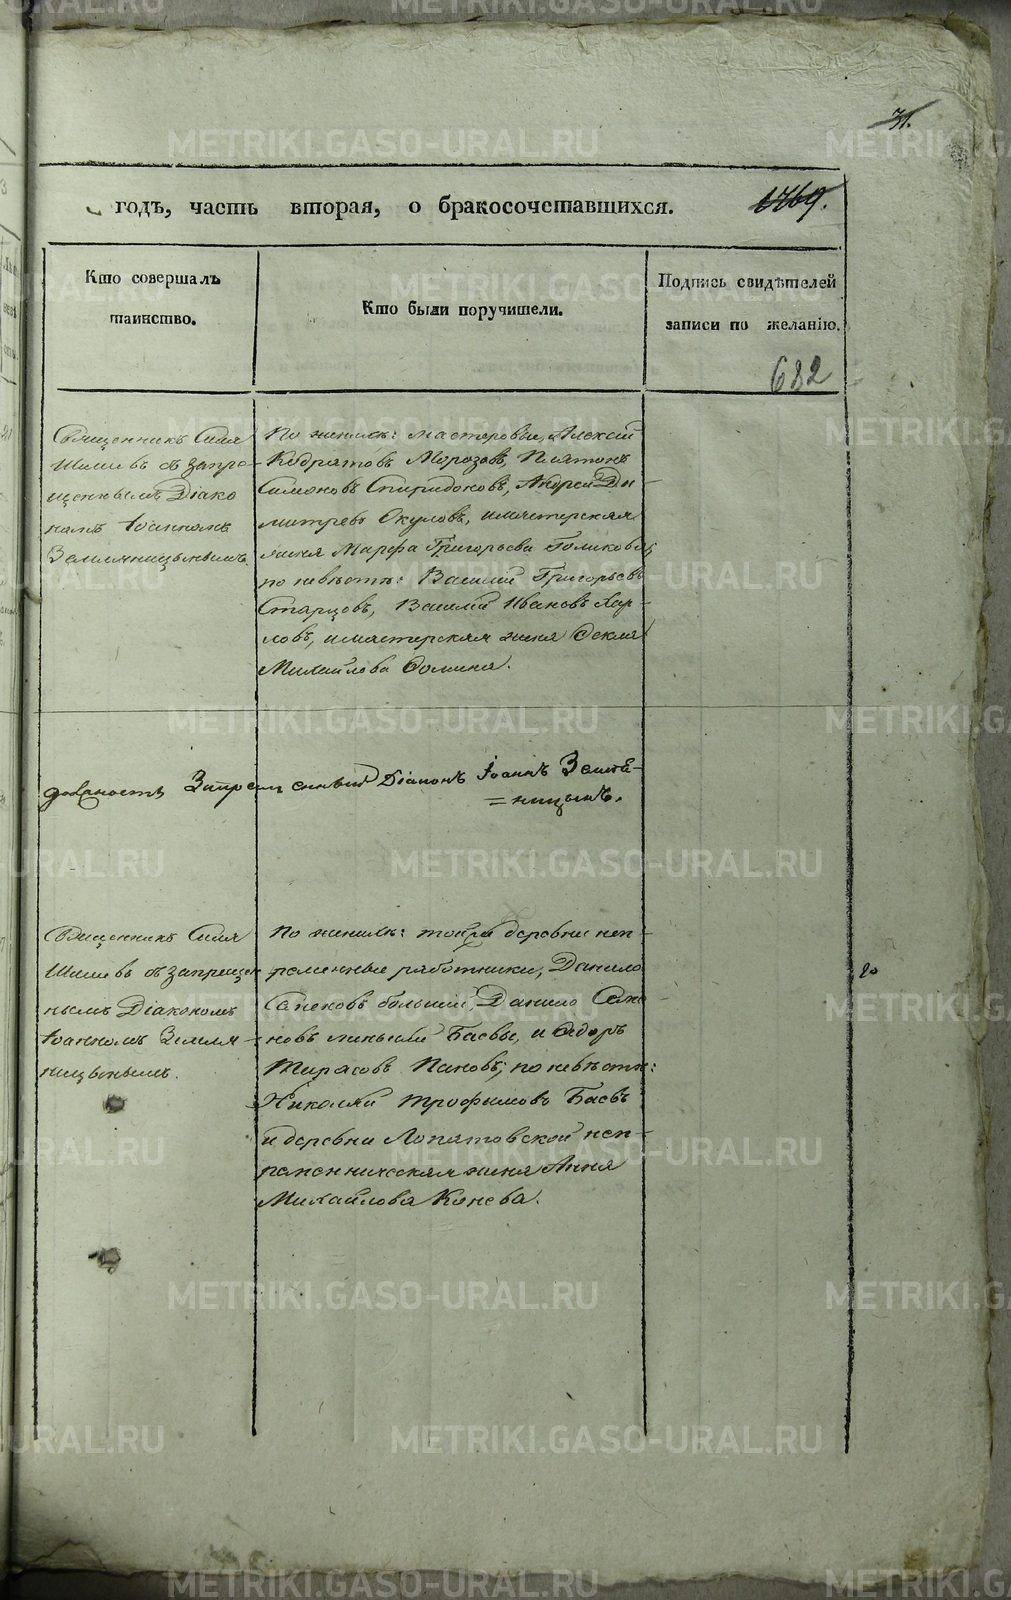 31.
годъ, часть вторая, о бракосочетавшихся.
1769.
Кто совершалъ
таинство.
Кто были поручители.
Подпись свидѣтелей
записи по желанію.
682
Священникъ Сила
Шишевъ съ запре-
щеннымъ Діако
номъ Іоанномъ
Земляницынымъ.
По женихѣ: мастеровые, Алексѣй
Кодратовъ Морозовъ, Платонъ
Симоновъ Спиридоновъ, Андрей Ди-
митревъ Окуловъ, и мастерская
жена Марѳа Григорьева Голикова;
по невѣстѣ: Василій Григорьевъ
Старцовъ, Василій Ивановъ Хар-
ловъ, и мастерская жена Ѳекла
Михайлова Ѳомина.
Запрещенный Діаконъ Іоаннъ Земля-
=ницынъ.
Священникъ Сила
Шишевъ съ запрещен
нымъ Діакономъ
Іоанномъ Земля-
ницынымъ.
По женихѣ: той же деревни неп-
ременные работники, Данило
большій, Данило
новъ меньшій Баевы, и Ѳедоръ
Тарасовъ Пановъ; по невѣстѣ:
Николай Трофимовъ Баевъ
и деревни Лопатовской неп-
ременническая жена Анна
Михайлова Конева.
METRIKI.GASO-URAL.RU